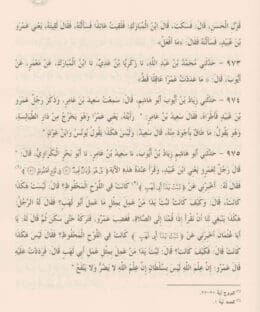 قول الحسن، قال: فسكت، قال ابن المبارك: فلقيت عائذًا فسألته، فقال لقيته، يعني عمرو
بن عبيد، فسألته فقال: «ما أفعل»
٩٧٣ - حدثني محمد بن عبد الله، نا زكريا بن عدي، نا ابن المبارك، عن معمر، عن
أيوب، قال: «ما عددت عمرًا عاقلًا قط»
٩٧٤ - حدثني زياد بن أيوب أبو هاشم، قال: سمعت سعيد بن عامر، وذكر رجل عمرو
بن عبيد فأطراه، فقال سعيد بن عامر: رأيته، يعني: عمرًا وهو يخرج من دار الطيالسة،
وهو يقول: ما طاق بأجود منه، قال سعيد: وليس هكذا يقول يونس وابن عون "
٩٧٥ - حدثني أبو هاشم زياد بن أيوب، نا سعيد بن عامر، نا أبو بحر البكراوي، قال: "
قال رجل لعمرو يعني ابن عبيد، وقرأ عنده هذه الآية
فقال له: أخبرني عن تبت يدا أبي لهب كانت في اللوح المحفوظ؟ قال: ليست هكذا
كانت، قال: فكيف كانت؟ قال: تبت يدا من عمل بمثل ما عمل أبو لهب، فقال له الرجل:
هكذا ينبغي لنا أن نقرأ إذا قمنا إلى الصلاة، فغضب عمرو، فتركه حتى سكن ثم قال له: يا
أبا عثمان أخبرني عن تبت يدا أبي لهب كانت في اللوح المحفوظ؟ قال: ليس هكذا
كانت قال: فكيف كانت؟ قال: تبت يدا من عمل بمثل عمل أبي لهب قال: فرددت عليه
قال عمرو: إن علم الله ليس بسلطان إن علم الله لا يضر ولا ينفع "